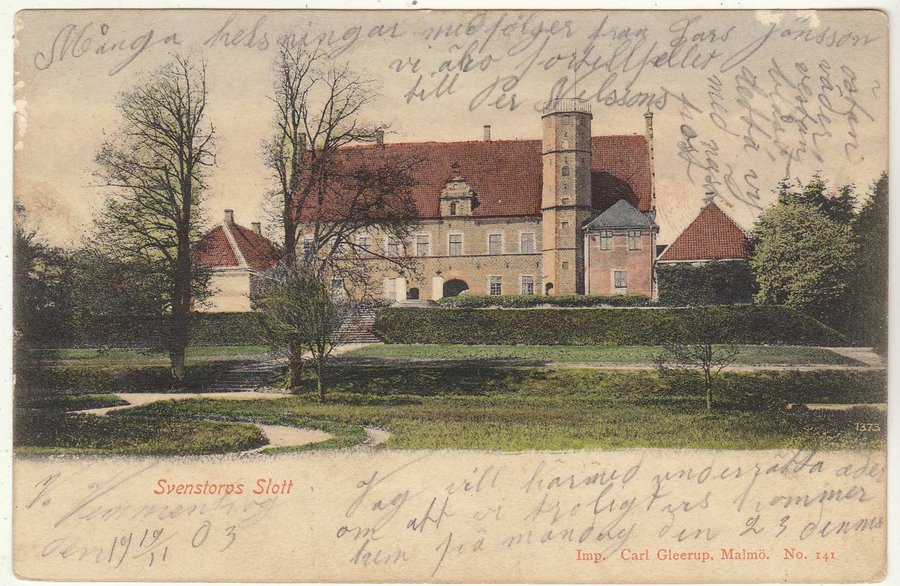 Många helsningar medföljer från Lars Jönsson
vi äro
till Per Nilssons
post
med näst
detta
väder
östan
1373
Svenstorps Slott
Jag vill härmed underrätta eder
om att vi troligtvis kommer
hem på måndag den 23 dennes
den 19 19/11 03
Imp. Carl Gleerup, Malmö. No. 141